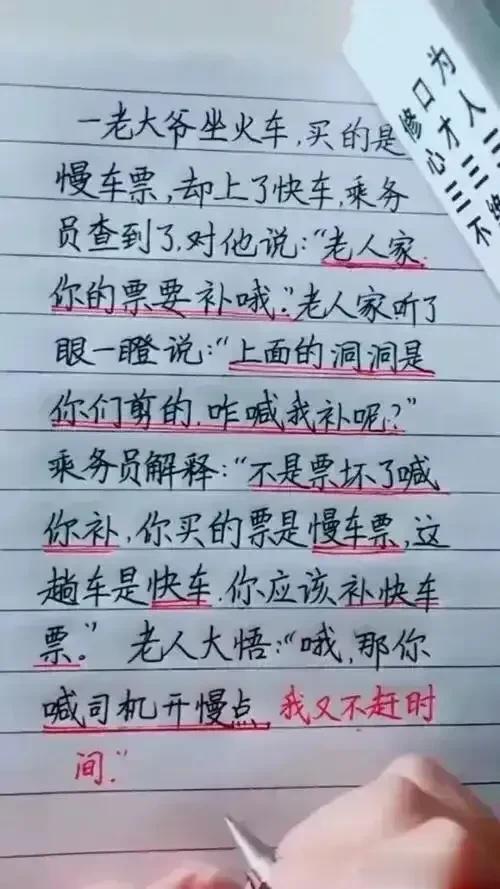 一老大爷坐火车,买的是
慢车票,却上了快车,乘务
员查到了,对他说:“老人家,
你的票要补哦。”老人家听了
眼一瞪说:“上面的洞洞是
你们剪的,咋喊我补呢?”
乘务员解释:“不是票坏了喊
你补,你买的票是慢车票,这
趟车是快车,你应该补快车
票。”老人大悟:“哦,那你
喊司机开慢点,我又不赶时
间。”
为人三不
口才三
修心三